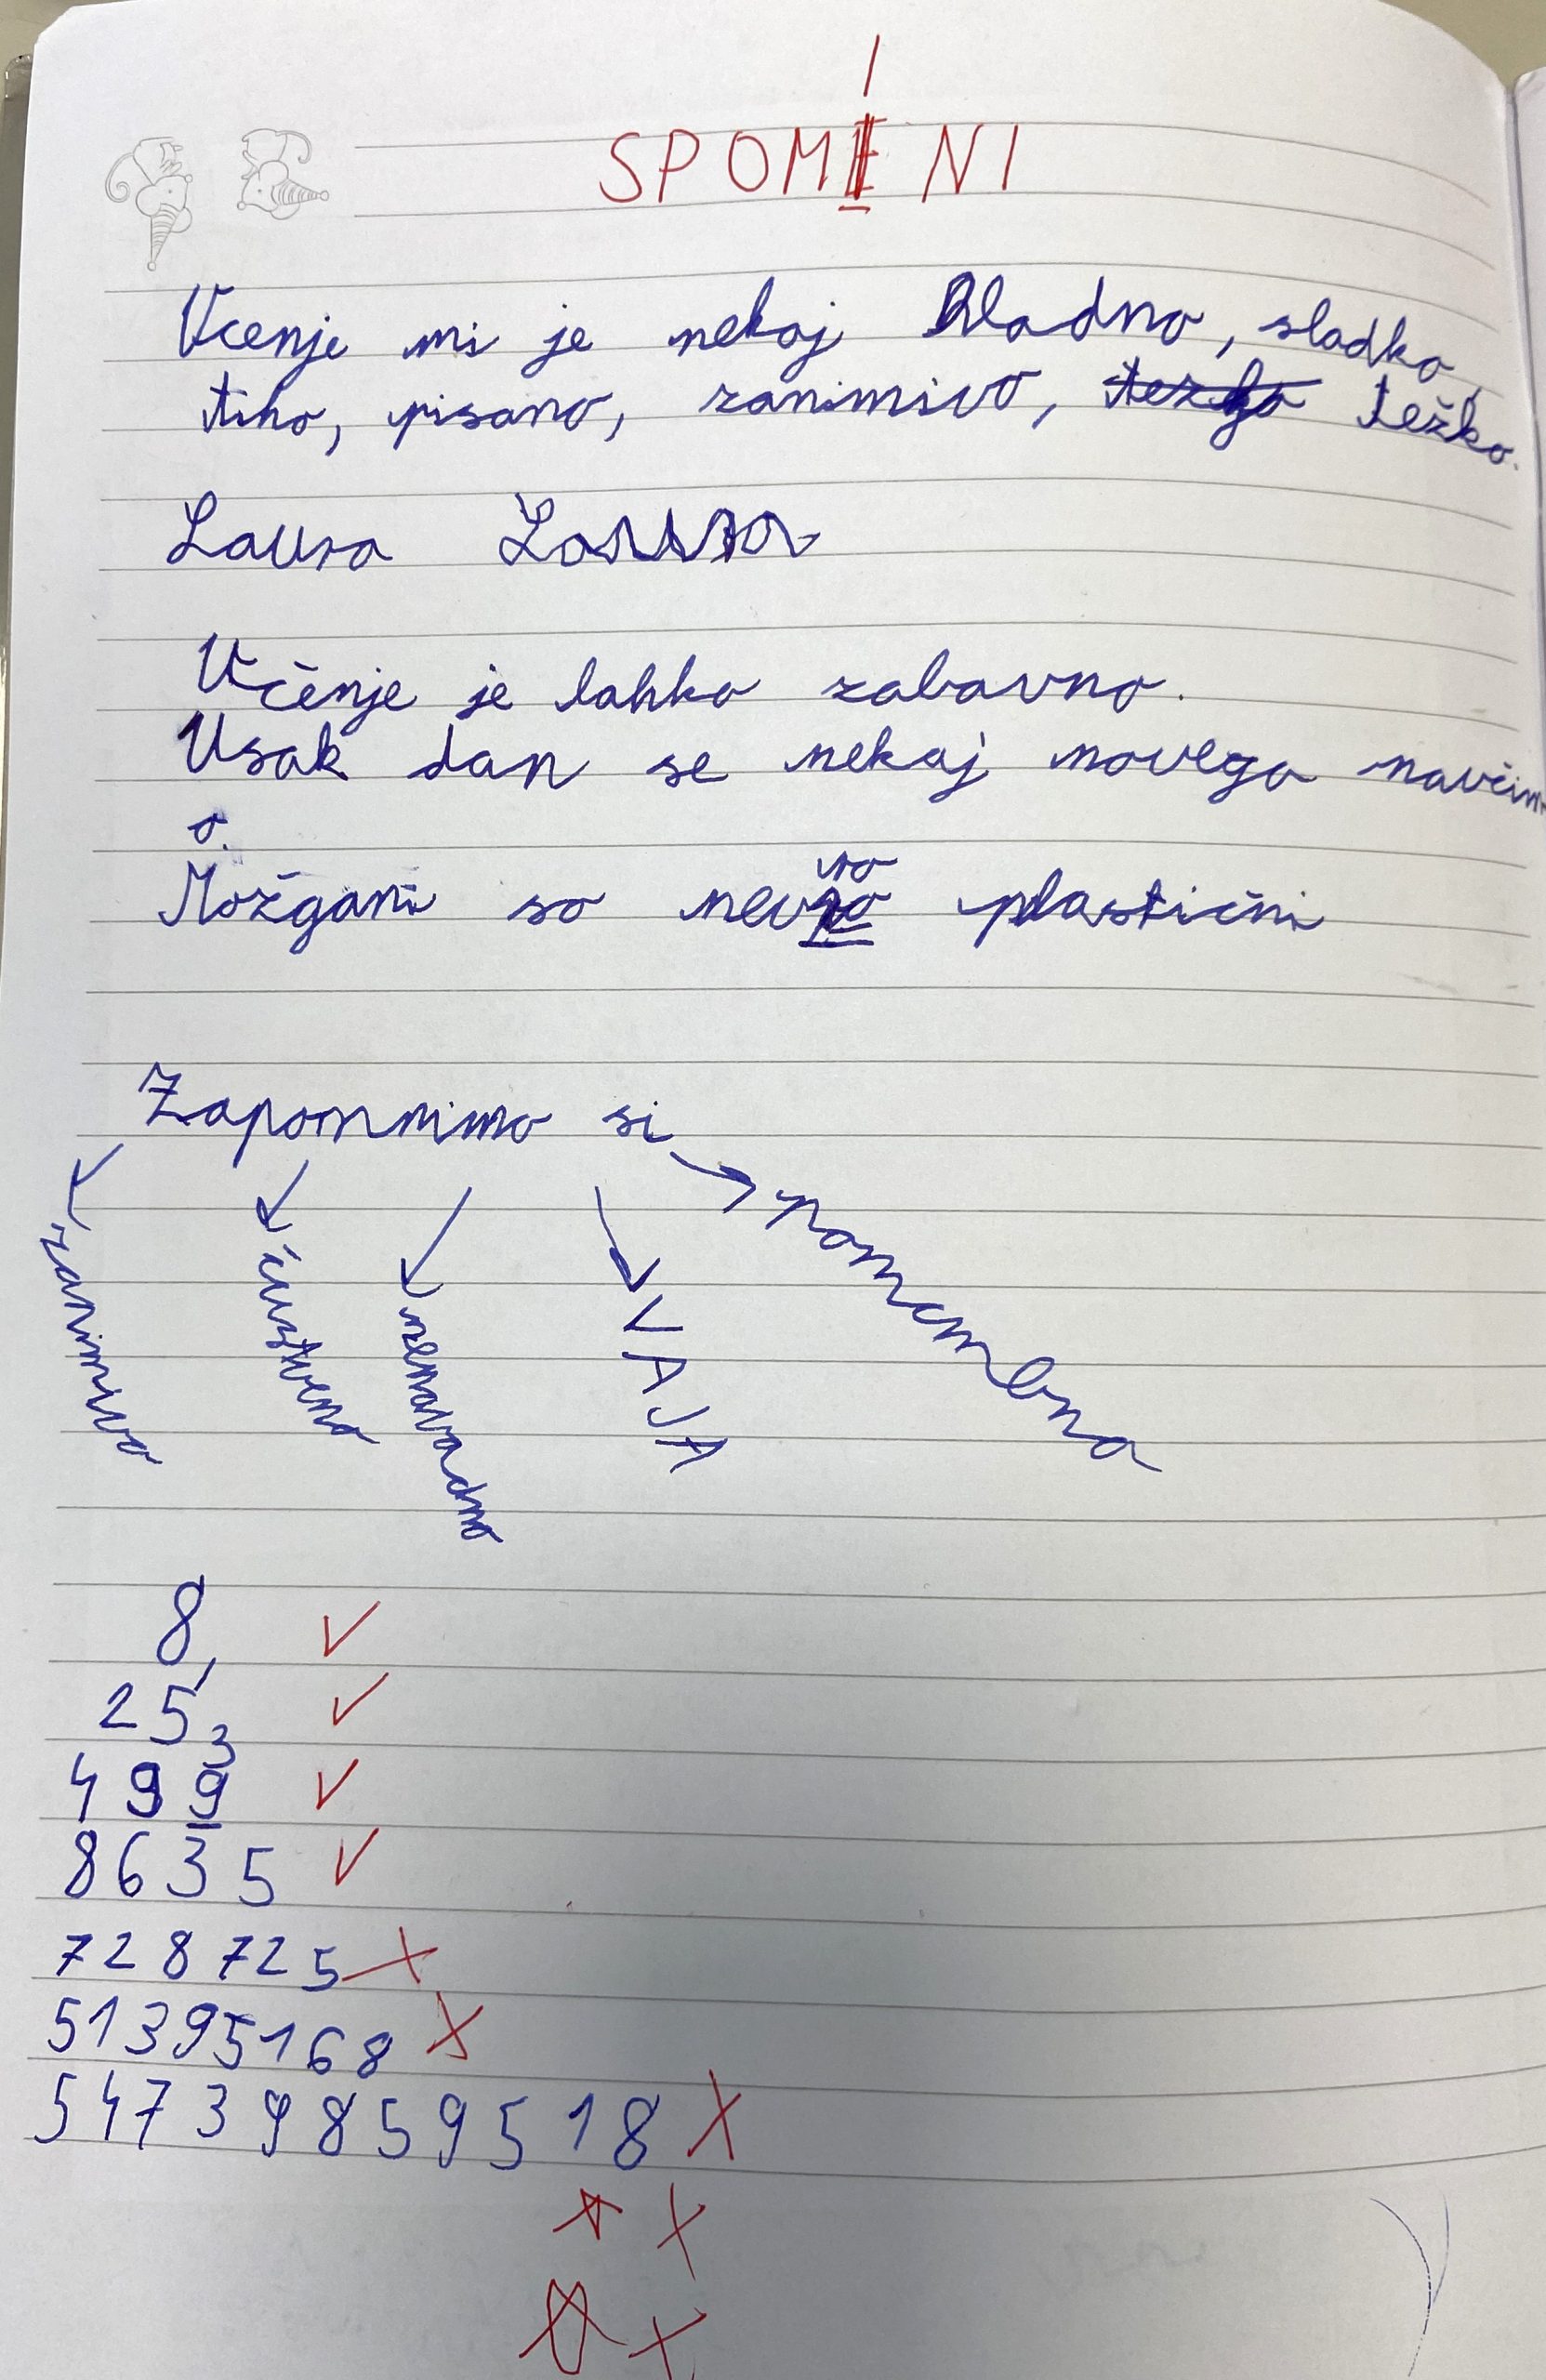 SPOMINI
Učenje mi je nekaj hladno, sladko,
tiho, pisano, zanimivo, težko.
Laura Laura
Učenje je lahko zabavno.
Vsak dan se nekaj novega naučim
o.
Možgani so nevro plastični
ro
Zapomnimo si
zanimivo
čustveno
nenavadno
VAJA
pomembno
8,
25,
499
3
8635
728725
51395168
54739859518